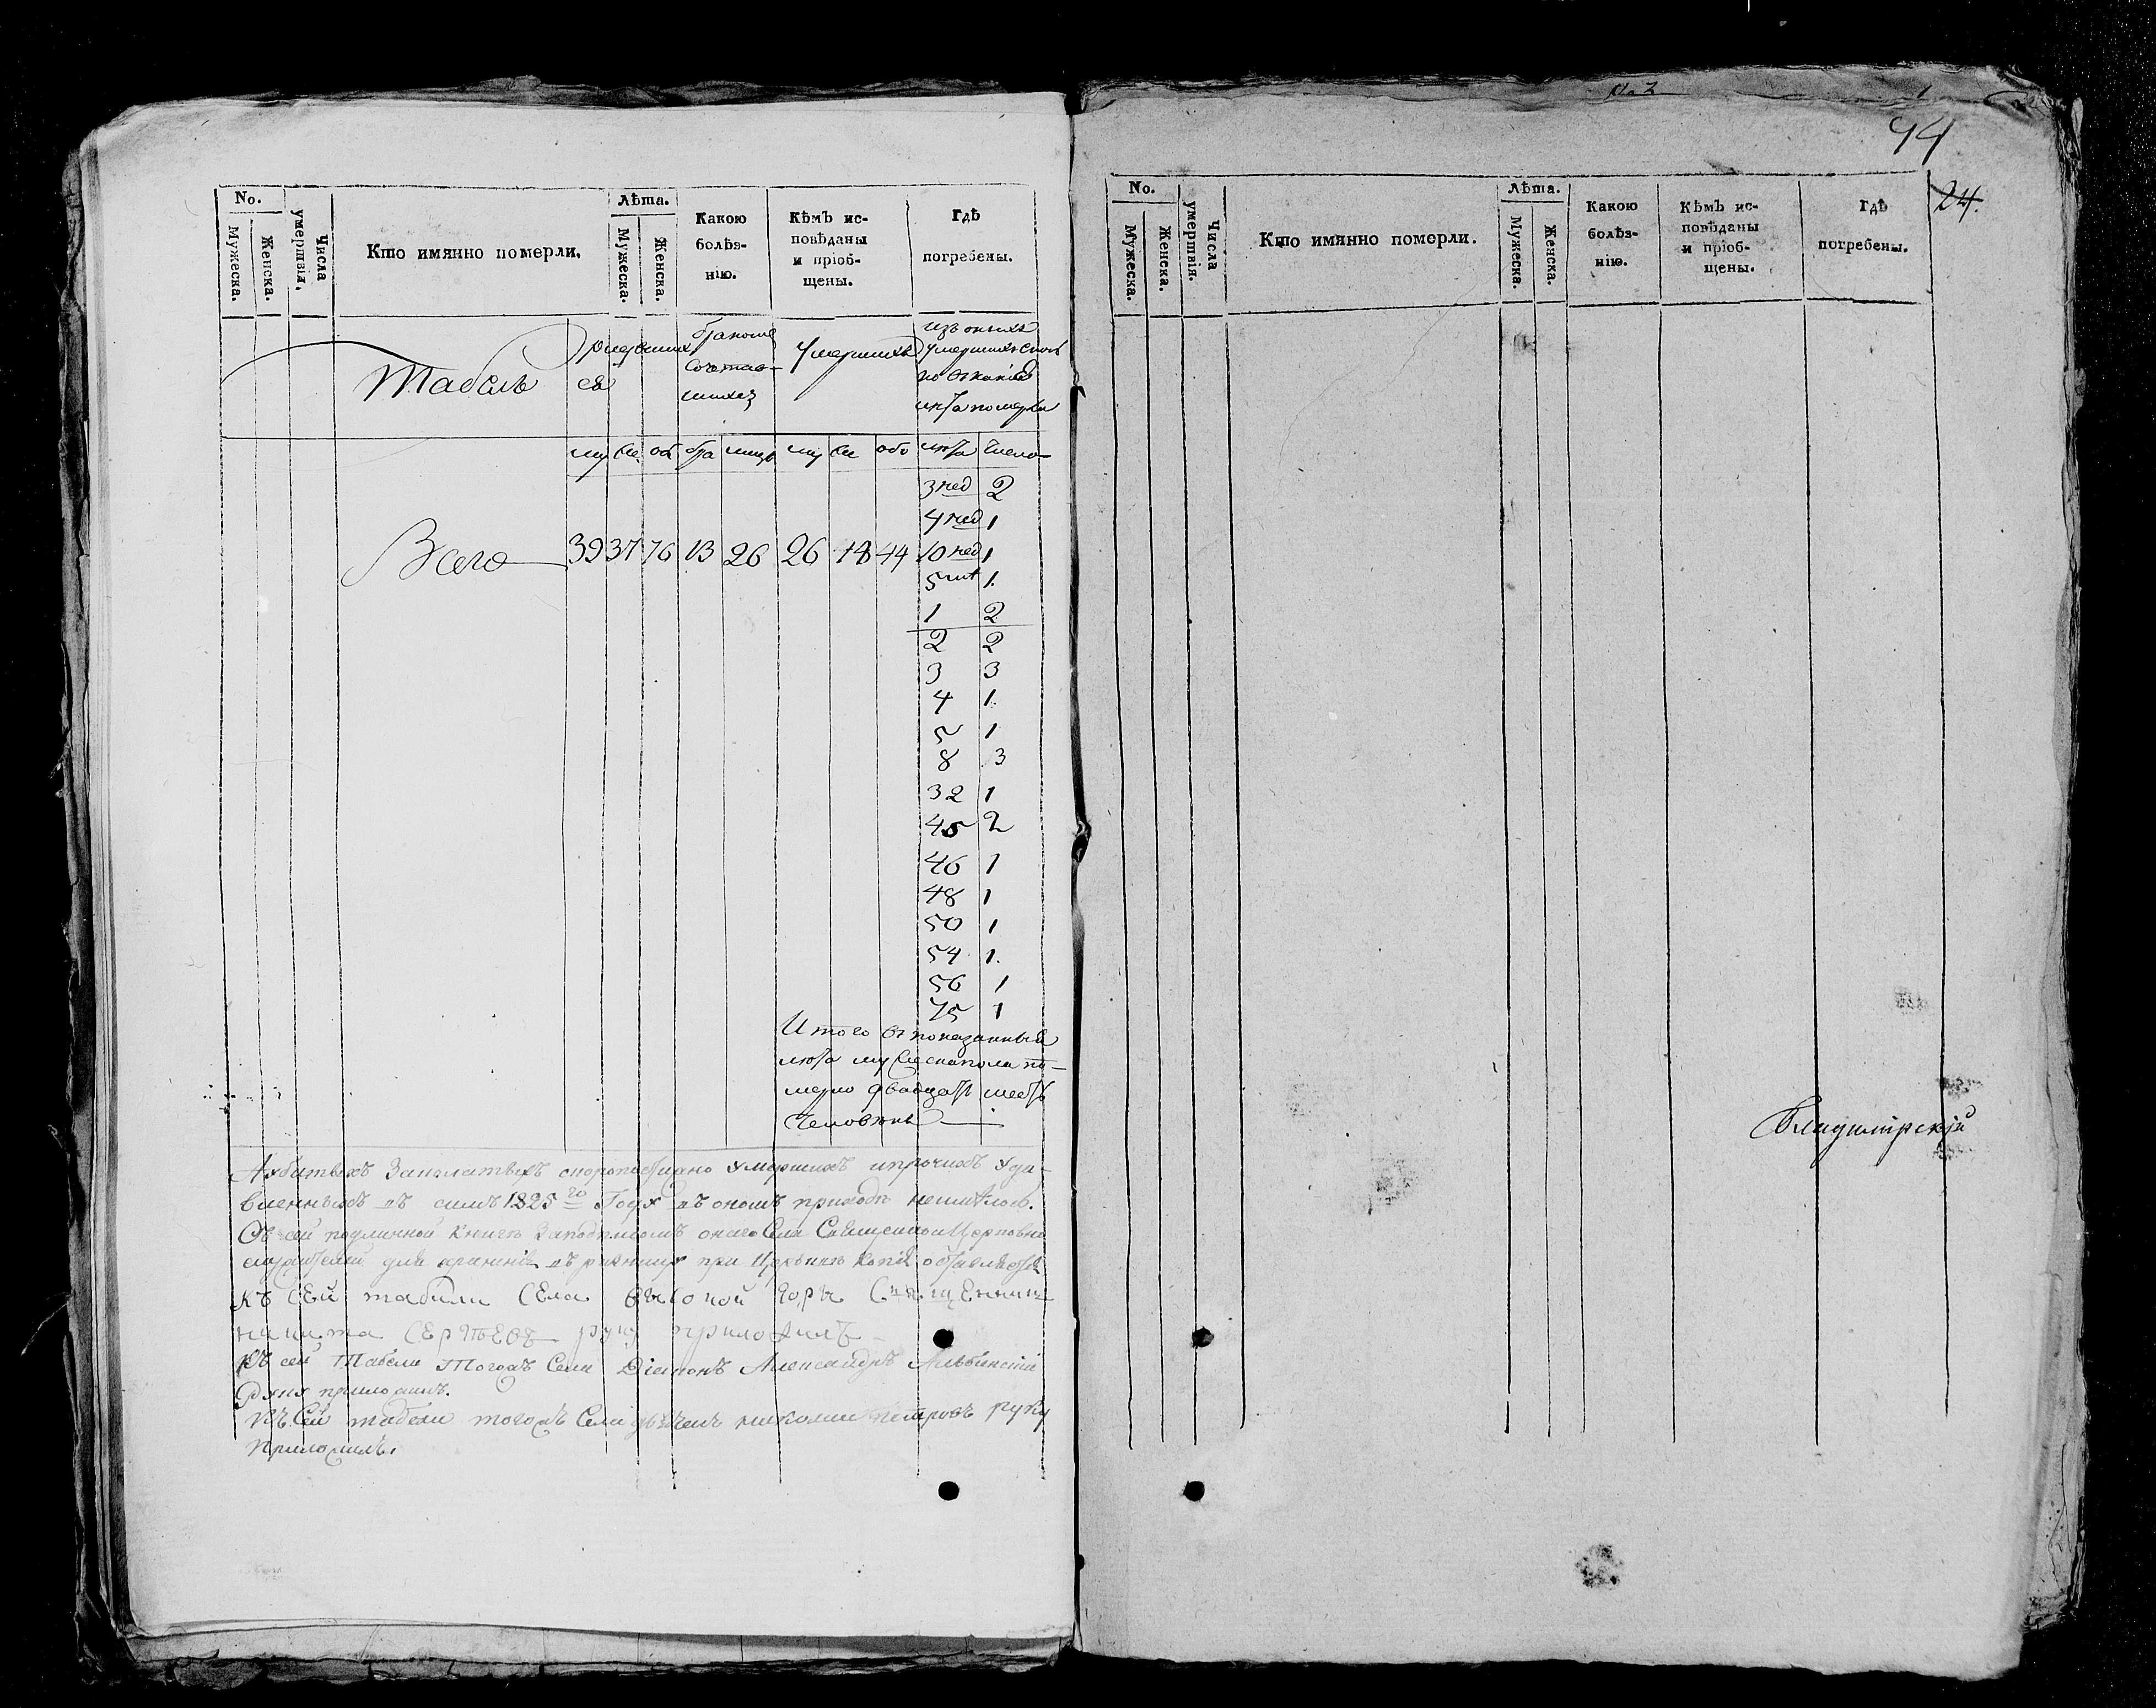 No.
Мужеска.
Женска.
Числа
умертвія.
Кто имянно померли.
Лѣта.
Мужеска.
Женска.
Какою
болѣз-
нію.
Кѣмъ ис-
повѣданы
и пріоб-
щены.
Гдѣ
погребены.
Табель
Рождших
ся
бракомъ
сочетав-
шихся
Умершихъ
изъ оныхъ
умершихъ
лѣта померли
му же об бра лицъ му же обо лѣта число
3 нед 2
4 нед 1
Всего 39 37 76 13 26 26 18 44 10 нед 1
5 мт 1.
1 2
2 2
3 3
4 1.
5 1
8 3
32 1
45 2
46 1
48 1
50 1
54 1.
56 1
75 1
Итого въ показанныя
лѣта мужеска пола по-
мерло двадцать шесть
человѣкъ
Убитыхъ скоропостижно умершихъ и прочихъ уда-
вленныхъ въ семъ 1825го Году въ ономъ приходѣ неимѣлось.
Съ сей подлинной книги онаго Села Священно и Церковно
служителей для хранения въ ризницу при Церькви копія оставляется
Къ СЕЙ табели СЕла высокой Горы Священник
никита СЕргѣЕвъ руку приложилъ
Къ сей Табели Тогожъ Села Діаконъ Александръ Альбинскій
руку приложилъ.
Къ Сей табели тогожъ Села дьячекъ николай петровъ руку
приложилъ.
44
No.
Мужеска.
Женска.
Числа
умертвія.
Кто имянно померли.
Лѣта.
Мужеска.
Женска.
Какою
болѣз-
нію.
Кѣмъ ис-
повѣданы
и пріоб-
щены.
Гдѣ
погребены.
24.
Владимірскій